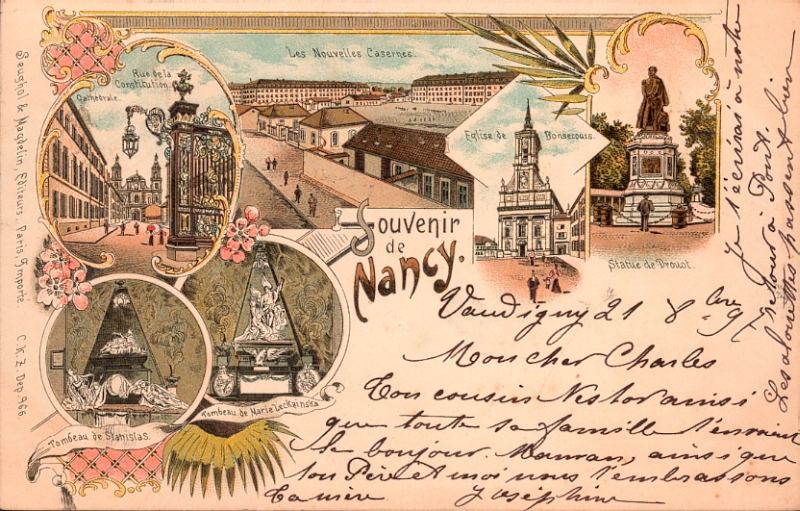 Les Nouvelles Casernes.
Rue de la
Constitution.
Cathédrale.
Eglise de Bonsecours.
Statue de Drouot.
Souvenir
de
Nancy.
Tombeau de Stanislas.
Tombeau de Marie Leckzinska
Seughol & Magdelin, Editeurs. Paris
C.K.Z. Dep. 966
Vaudigny 21 8bre 97
Mon cher Charles
Ton cousin Nestor ainsi
que toute sa famille t'envoient
le bonjour. Maman, ainsi que
ton Père et moi nous t'embrassons
Ta mère. Joséphine
Je t'écrirai à notre
retour à Pont.
Les alouettes passent bien